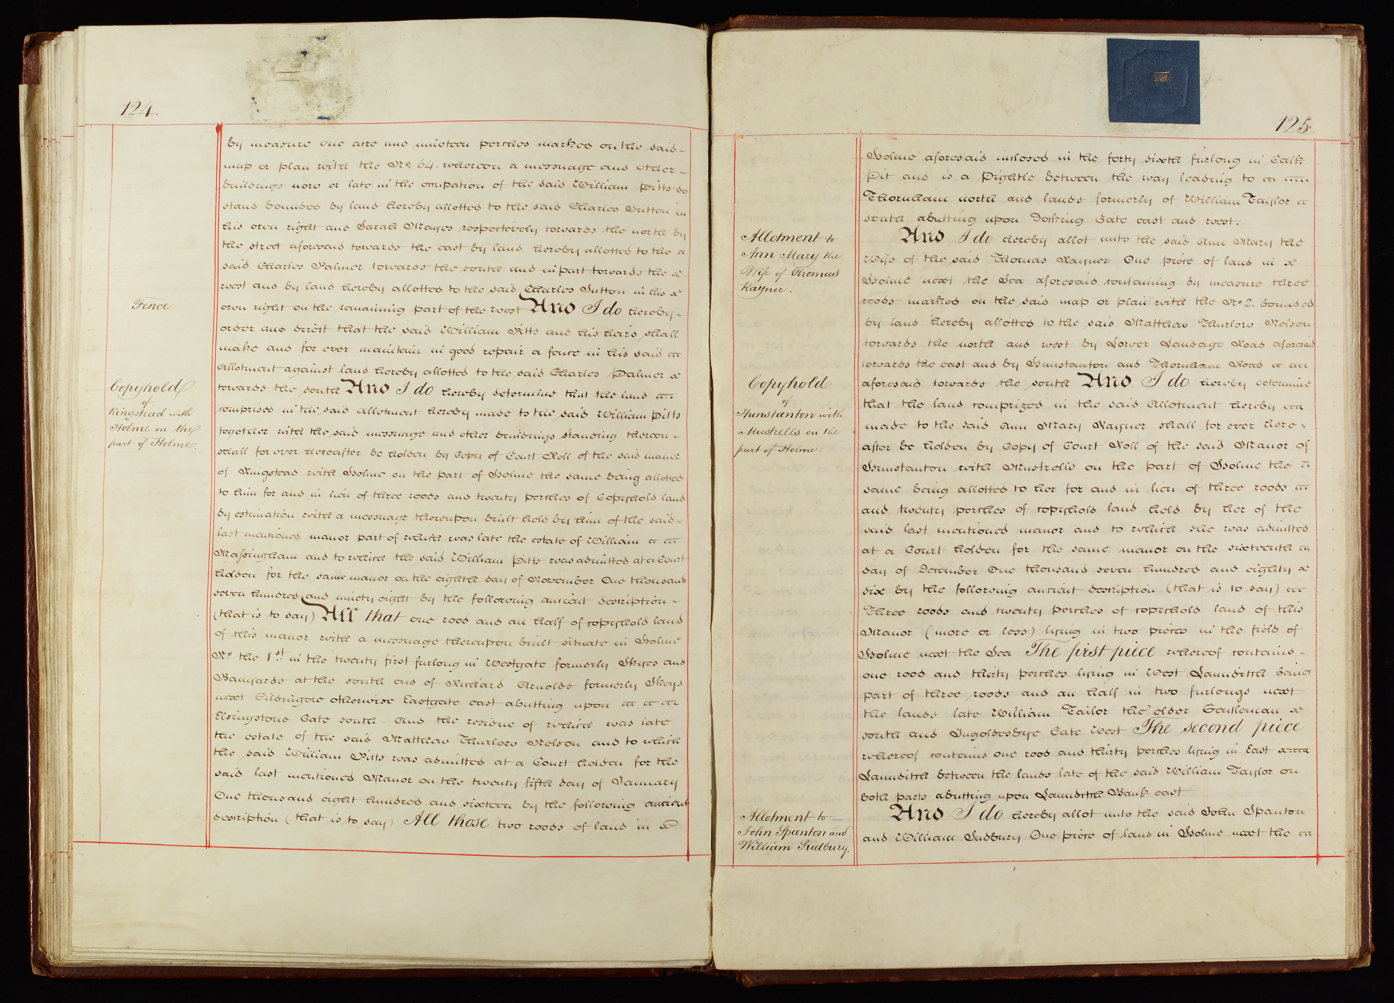 124
by measure one acre and nineteen perches marked on the said
map or plan with the No 64. whereon a messuage and other
buildings now or late in the occupation of the said William Pitts do
stand bounded by land hereby allotted to the said Charles Sutton in
his own right and Sarah Mayes respectively towards the north by
the street aforesaid towards the east by land hereby allotted to the
said Charles Palmer towards the south and in part towards the
west and by land hereby allotted to the said Charles Sutton in his
Fence
own right on the remaining part of the west And I do hereby
order and direct that the said William Pitts and his heirs shall
make and for ever maintain in good repair a fence in his said
allotment against land hereby allotted to the said Charles Palmer
towards the south And I do hereby determine that the land
Copyhold
of
Ringstead with
Holme in the
part of Holme.
comprised in the said allotment hereby made to the said William Pitts
together with the said messuage and other buildings standing thereon
shall for ever hereafter be holden by Copy of Court Roll of the said manor
of Ringstead with Holme on the part of Holme the same being allotted
to him for and in lieu of three roods and twenty perches of Copyhold land
by estimation with a messuage thereupon built held by him of the said
last mentioned manor part of which was late the estate of William
Massingham and to which the said William Pitts was admitted at a Court
holden for the same manor on the eighth day of November One thousand
seven hundred and ninety eight by the following ancient description
(that is to say) All that one rood and an half of copyhold land
of this manor with a messuage thereupon built situate in Holme
No. the 1st in the twenty first furlong in Westgate formerly Skyes and
Banyards at the south end of Richard Arnolds formerly Skeys
next otherwise Eastgate east abutting upon
Gate south And the residue of which was late
the estate of the said Matthew Thurlow Nelson and to which
the said William Pitts was admitted at a Court holden for the
said last mentioned Manor on the twenty fifth day of January
One thousand eight hundred and sixteen by the following ancient
description (that is to say) All those two roods of land in
125
Holme aforesaid inclosed in the forty sixth furlong in Calk
Pit and is a Pightle between the way leading to
Thornham north and lands formerly of William Taylor
south abutting upon Docking Gate east and west.
Allotment to
Ann Mary the
Wife of Thomas
Rayner.
And I do hereby allot unto the said Ann Mary the
Wife of the said Thomas Rayner One piece of land in
Holme next the Sea aforesaid containing by measure three
roods marked on the said map or plan with the No 2. bounded
by land hereby allotted to the said Matthew Thurlow Nelson
towards the north and west by Lower Road aforesaid
towards the east and by Hunstanton and Thornham Road
Copyhold
of
Hunstanton with
Mustrells on the
part of Holme
aforesaid towards the south And I do hereby determine
that the land comprized in the said Allotment hereby
made to the said Ann Mary Rayner shall for ever here
after be holden by Copy of Court Roll of the said Manor of
Hunstanton with Mustrells on the part of Holme the
same being allotted to her for and in lieu of three roods
and twenty perches of copyhold land held by her of the
said last mentioned manor and to which she was admitted
at a Court holden for the same manor on the sixteenth
day of December One thousand seven hundred and eighty
six by the following ancient description (that is to say)
Three roods and twenty perches of copyhold land of this
Manor (more or less) lying in two pieces in the field of
Holme next the Sea The first piece whereof contains
one rood and thirty perches lying in West Launditch being
part of three roods and an half in two furlongs next
the lands late William Tailor the elder Gentleman
south and Gate west The second piece
whereof contains one rood and thirty perches lying in East
Launditch between the lands late of the said William Taylor on
both parts abutting upon Launditch Bank east
Allotment to
John Spanton and
William Sudbury.
And I do hereby allot unto the said John Spanton
and William Sudbury One piece of land in Holme next the